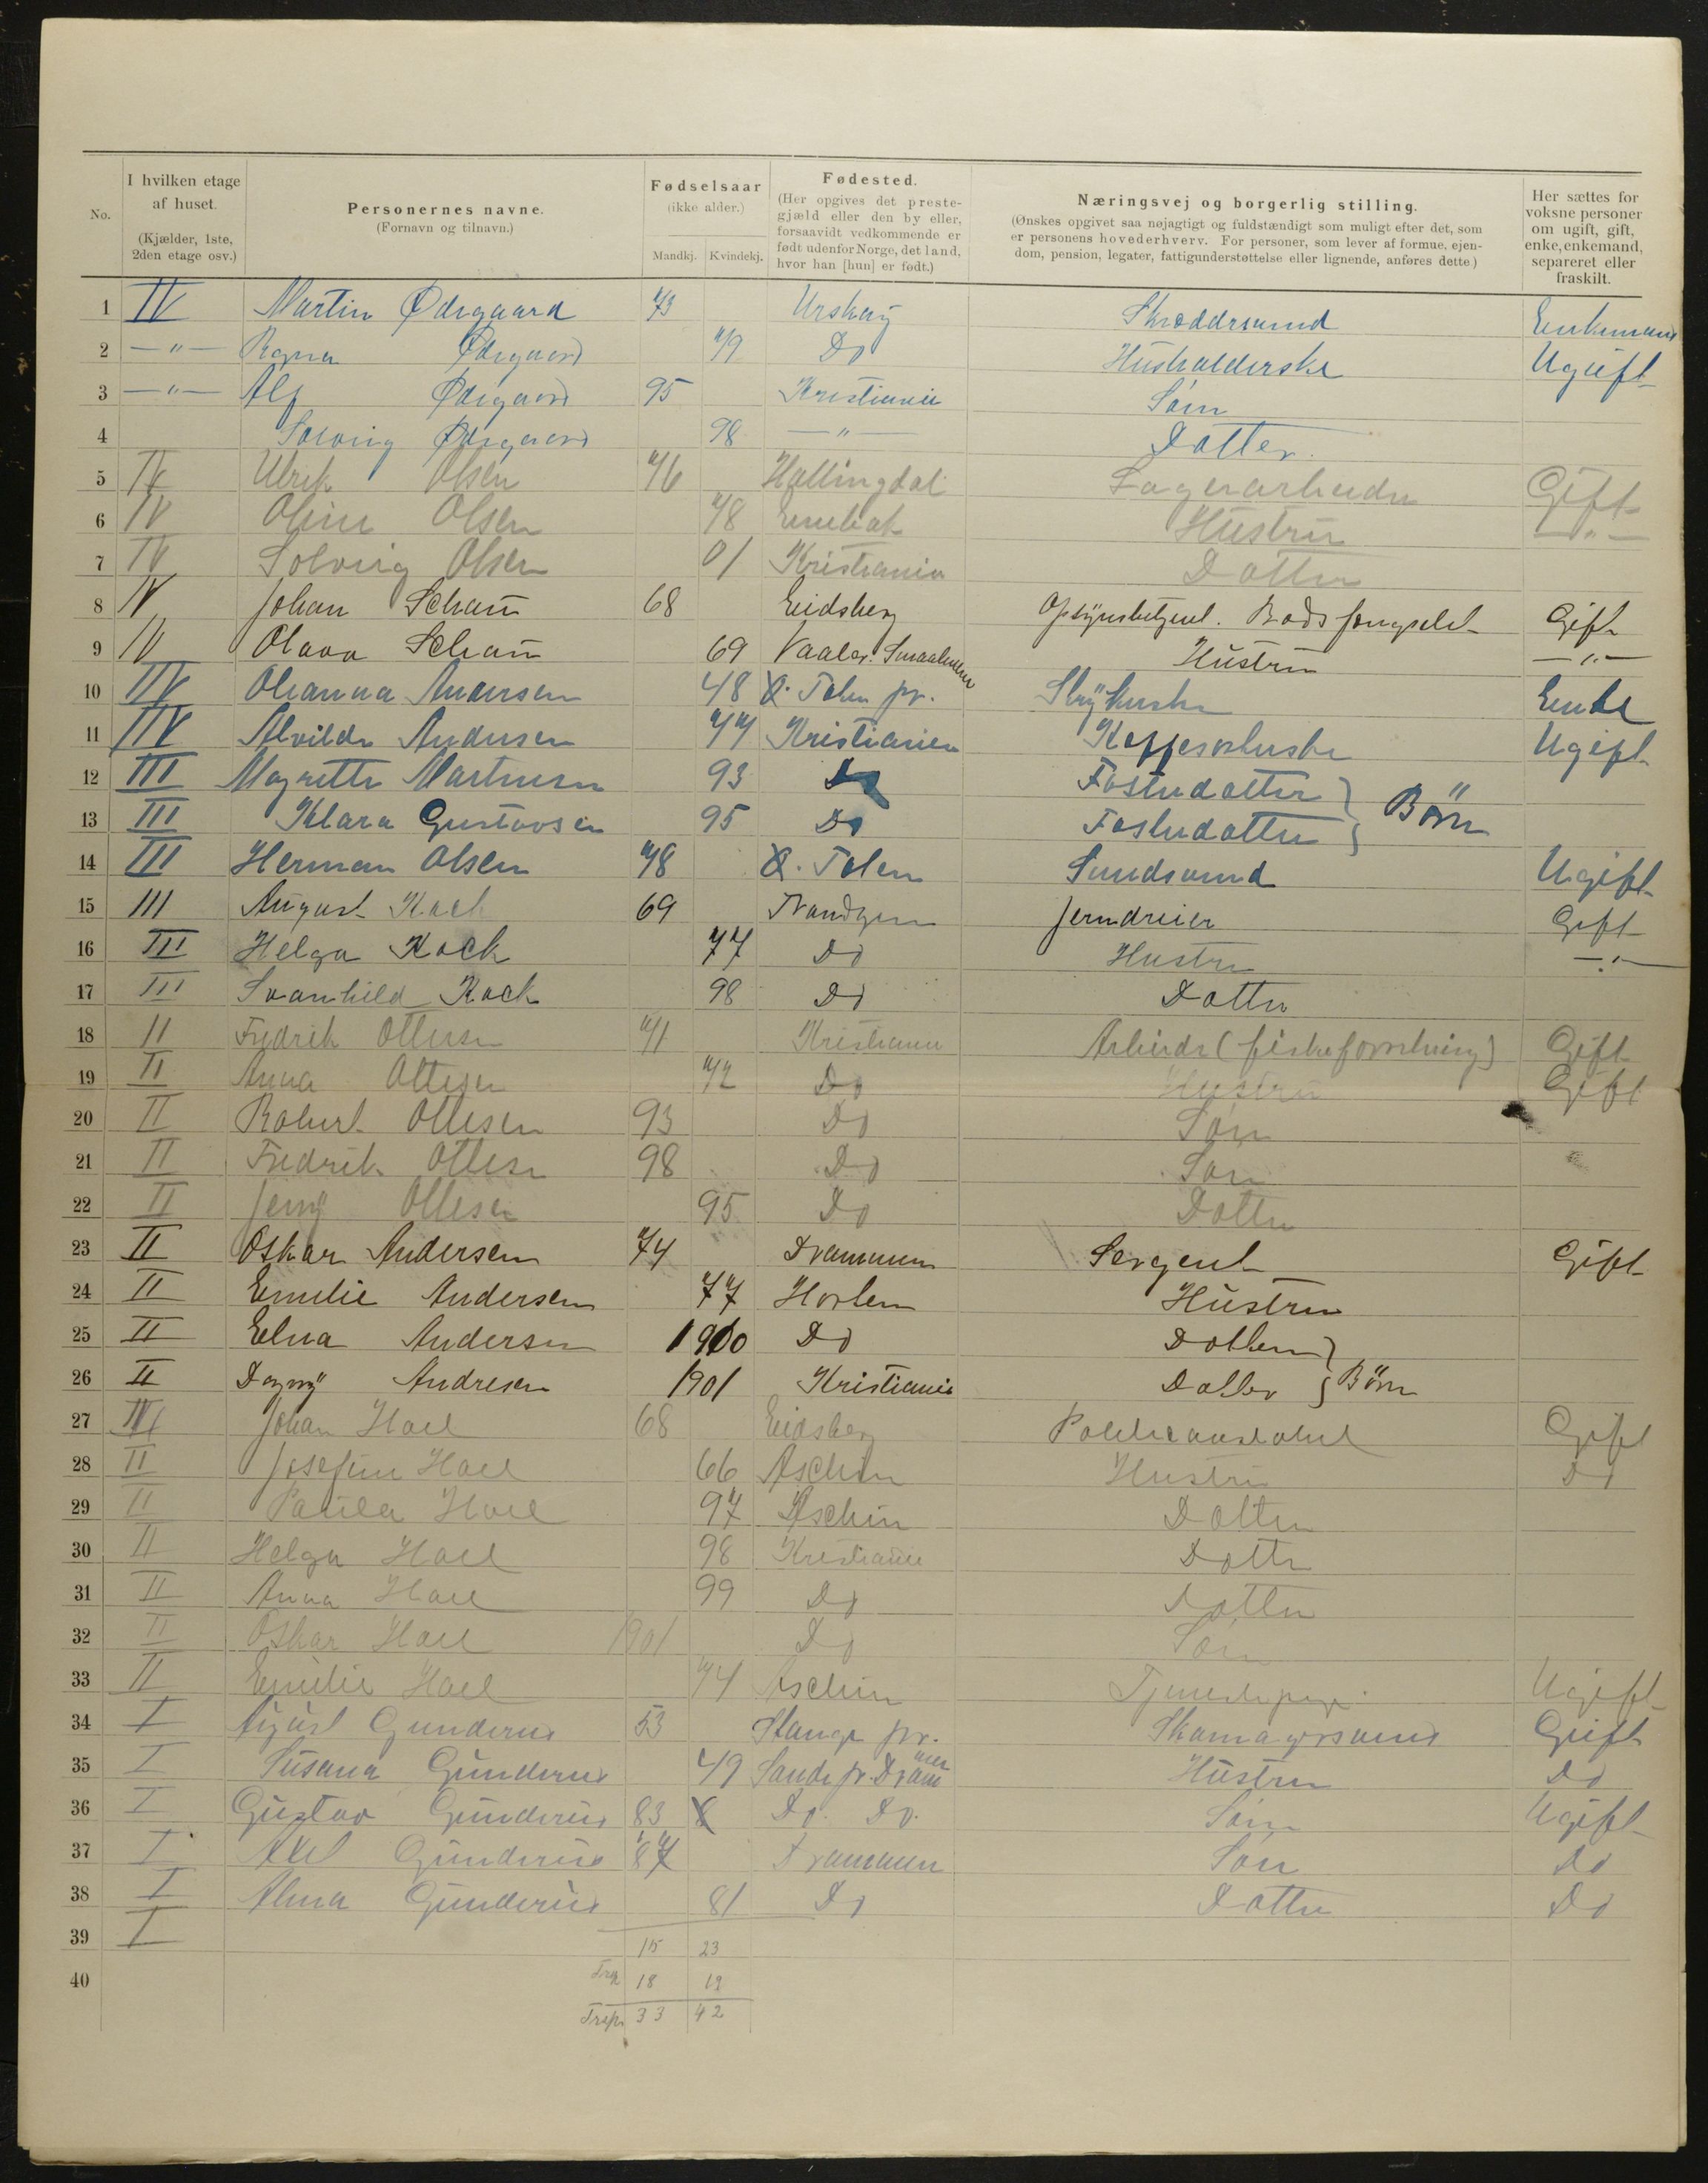 No.
I hvilken etage af huset. (Kjælder, 1ste, 2den etage osv.)
Personernes navne. (Fornavn og tilnavn.)
Fødselsaar (ikke alder.) Mandkj. Kvindekj.
Fødested. (Her opgives det prestegjæld eller den by eller, forsaavidt vedkommende er født udenfor Norge, det land, hvor han [hun] er født.)
Næringsvej og borgerlig stilling. (Ønskes opgivet saa nøjagtigt og fuldstændigt som muligt efter det, som er personens hovederhverv. For personer, som lever af formue, ejendom, pension, legater, fattigunderstøttelse eller lignende, anføres dette.)
Her sættes for voksne personer om ugift, gift, enke, enkemand, separeret eller fraskilt.
1 IV Martin Ødegaard 73 Urskoug Skræddersvend Enkemand
2 —"— Ragna Ødegaard 79 Do Husholderske Ugift
3 —"— Alf Ødegaard 95 Kristiania Søn
4 Solveig Ødegaard 98 —"— Datter.
5 IV Ulrik Olsen 76 Hallingdal Lagerarbeider Gift
6 IV Oline Olsen 78 Enebak Hustru —"—
7 IV Solveig Olsen 01 Kristiania Datter
8 IV Johan Schau 68 Eidsberg Opsynsbetjent. Bodsfængselet Gift
9 IV Olava Schau 69 Vaaler. Smaalenene Hustru —"—
10 IV Oleanna Andersen 48 Ø. Toten pr. Strykerske Enke
11 IV Alvilde Andersen 77 Kristiania Ugift
12 III Magrethe Martinsen 93 Do Fosterdatter } Børn
13 III Klara Gustavsen 95 Do Fosterdatter }
14 III Herman Olsen 78 Ø. Toten Smedsvend Ugift
15 III August Kock 69 Jerndreier Gift
16 III Helga Kock 77 Do Hustru —"—
17 III Svanhild Kock 98 Do Datter
18 II Fredrik Ottesen 71 Kristiania Arbeider (fiskeforretning) Gift
19 II Anna Ottesen 72 Do Hustru Gift
20 II Robert Ottesen 93 Do Søn
21 II Fredrik Ottesen 98 Do Søn
22 II Jenny Ottesen 95 Do Datter
23 II Oskar Andersen 74 Drammen Sergent Gift
24 II Emilie Andersen 77 Horten Hustru
25 II Elna Andersen 1900 Do Datter } Børn
26 II Dagny Andresen 1901 Kristiania Datter }
27 II Johan Hoel 68 Eidsberg Politikonstabel Gift
28 II Josefine Hoel 66 Aschim Hustru Do
29 II Paula Hoel 97 Aschim Datter
30 II Helga Hoel 98 Kristiania Datter
31 II Anna Hoel 99 Do Datter
32 II Oskar Hoel 1901 Do Søn
33 II Emilie Hoel 74 Aschim Tjenestepige. Ugift
34 I August Gunderus 53 Stange pr. Skomagersvend Gift
35 I Susana Gunderus 49 Sande pr. Drammen Hustru Do
36 I Gustav Gunderus 83 Do. Do. Søn Ugift
37 I Axel Gunderus 87 Drammen Søn Do
38 I Alma Gunderus 81 Do Datter Do
39 I 15 23
40 18 19
33 42